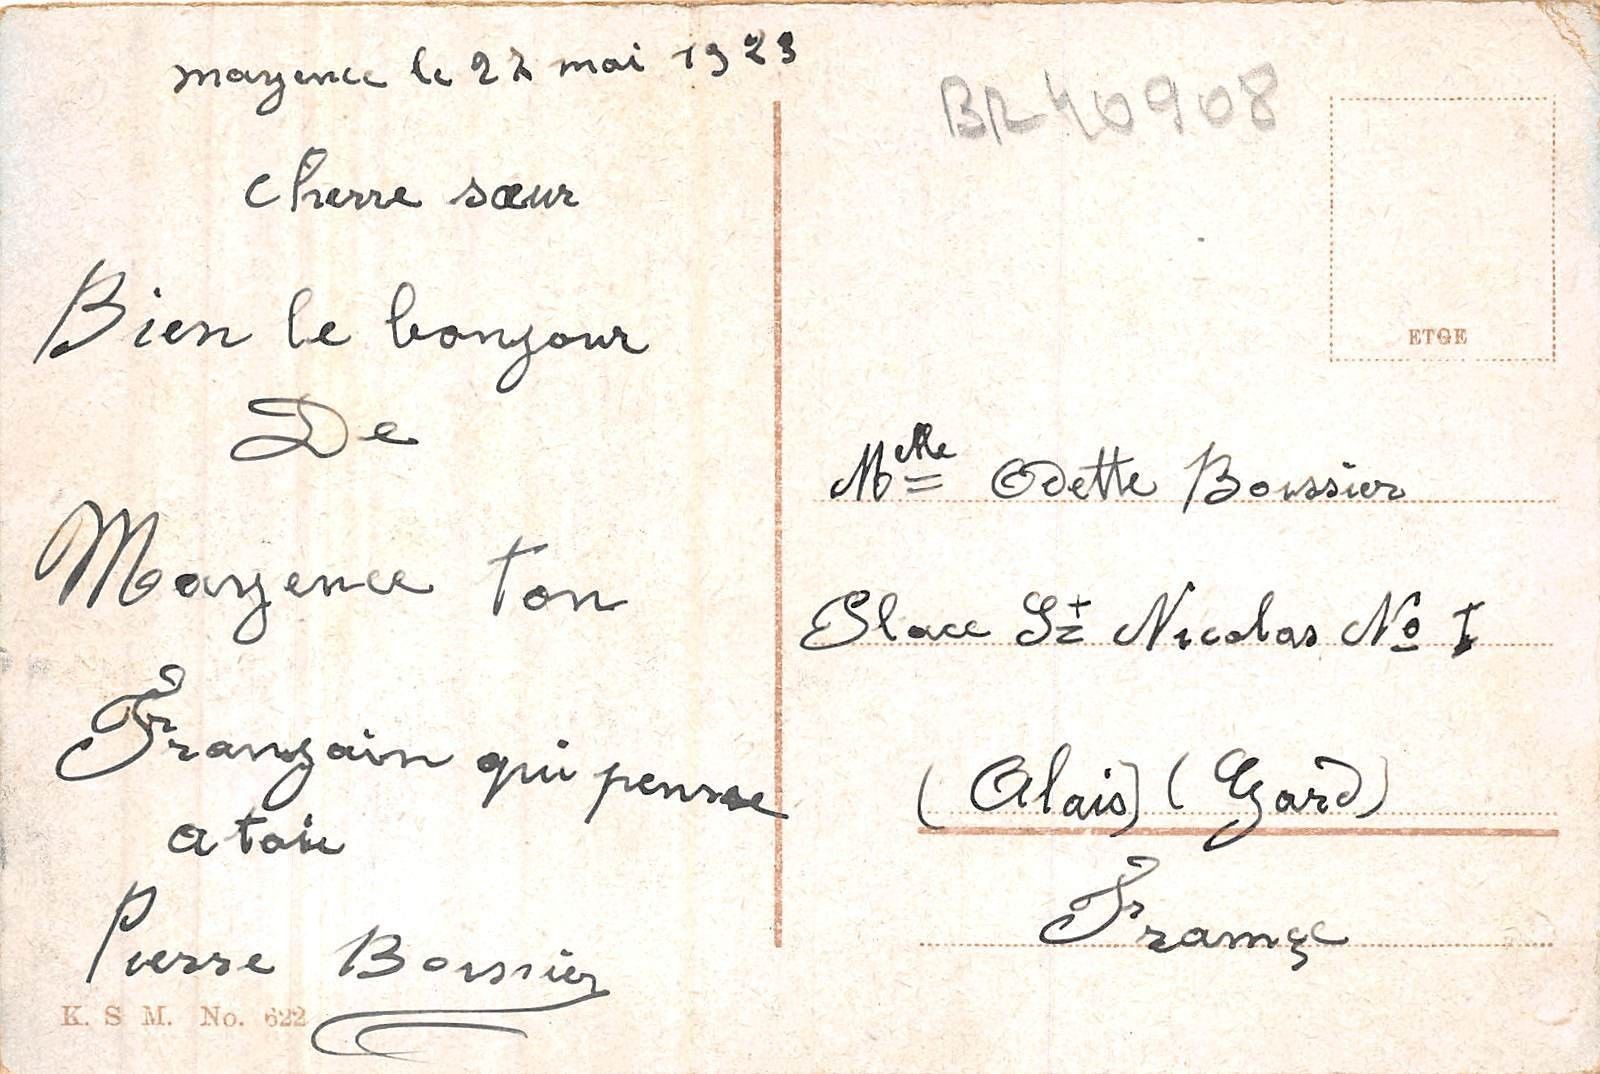 mayence le 27 mai 1923
Cherre sœur
Bien le bonjour
De
Mayence ton
Françain qui pensse
a toie
Pierre Boissier
K. S. M. No. 622
BR40908
ETGE
Melle Odette Boissier
Place St Nicolas No 1
(Alais) (Gard)
France